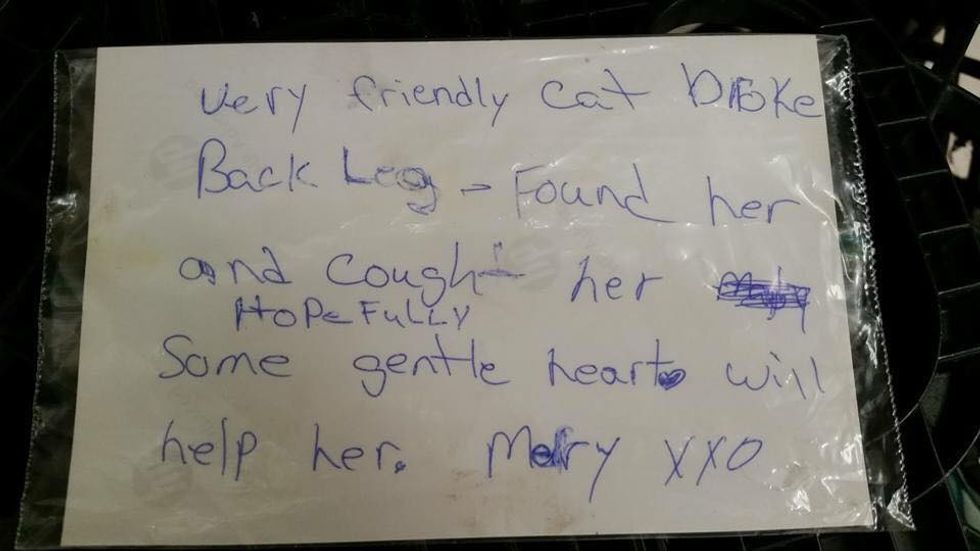 very friendly cat broke
Back Leg - Found her
and cought her
Hopefully
Some gentle heart will
help her. Merry xxo